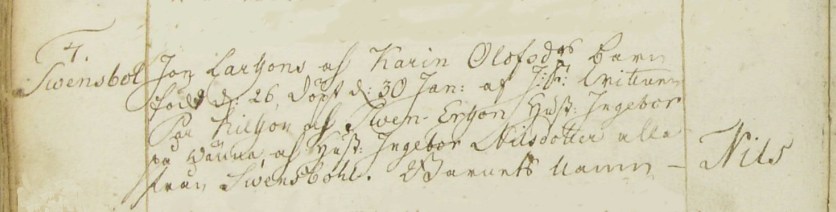 4.
Swensbol
Jon Larssons af Karin Olofsdrs barn
född d: 26, döpt d: 30 Jan: af
Per Nilsson af Swen Ersson Hust: Ingebor
på Wänna, af Hust: Ingebor Nilsdotter alla
från Swensbohl. Barnets namn –
Nils